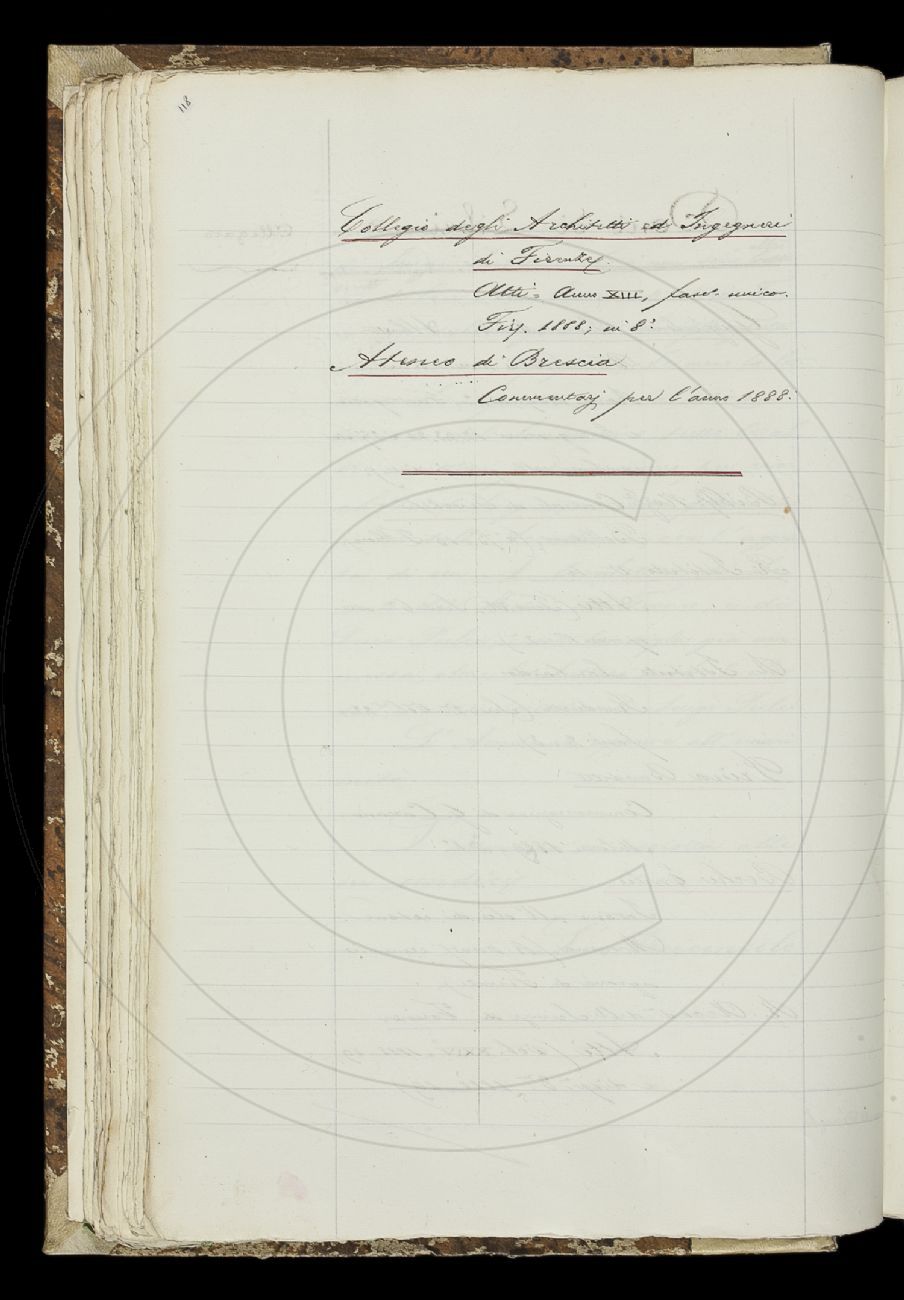 118
Collegio degli Architetti ed Ingegneri
di Firenze.
Atti = Anno XIII, fasc. unico.
Fir. 1888; in 8.
Ateneo di Brescia
Commentarj per l'anno 1888.